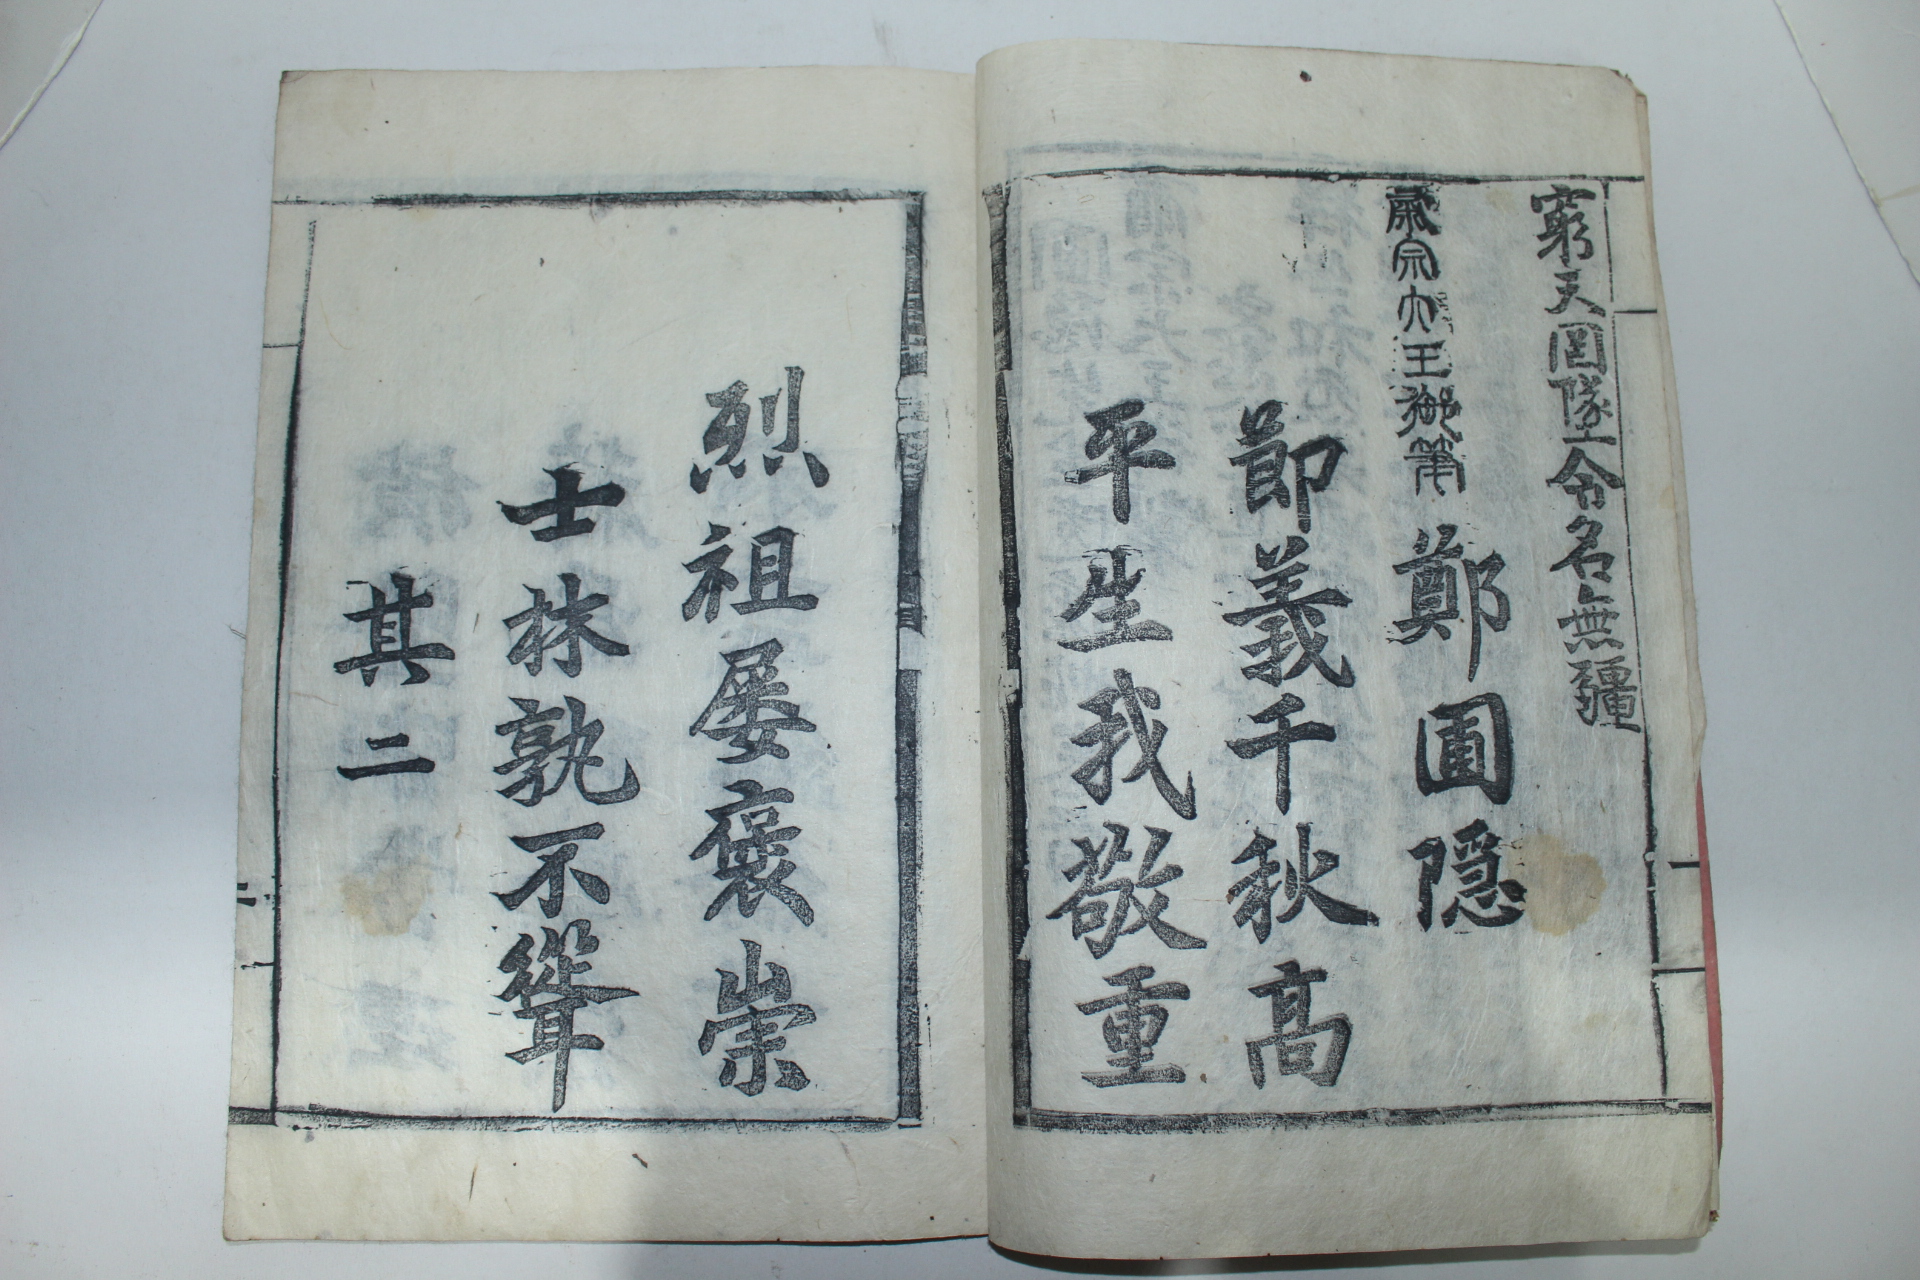 窮天罔墜令名無疆
肅宗大王御筆
鄭圃隠
節義千秋高
平生我敬重
烈祖屡褒崇
士林孰不聳
其二
二